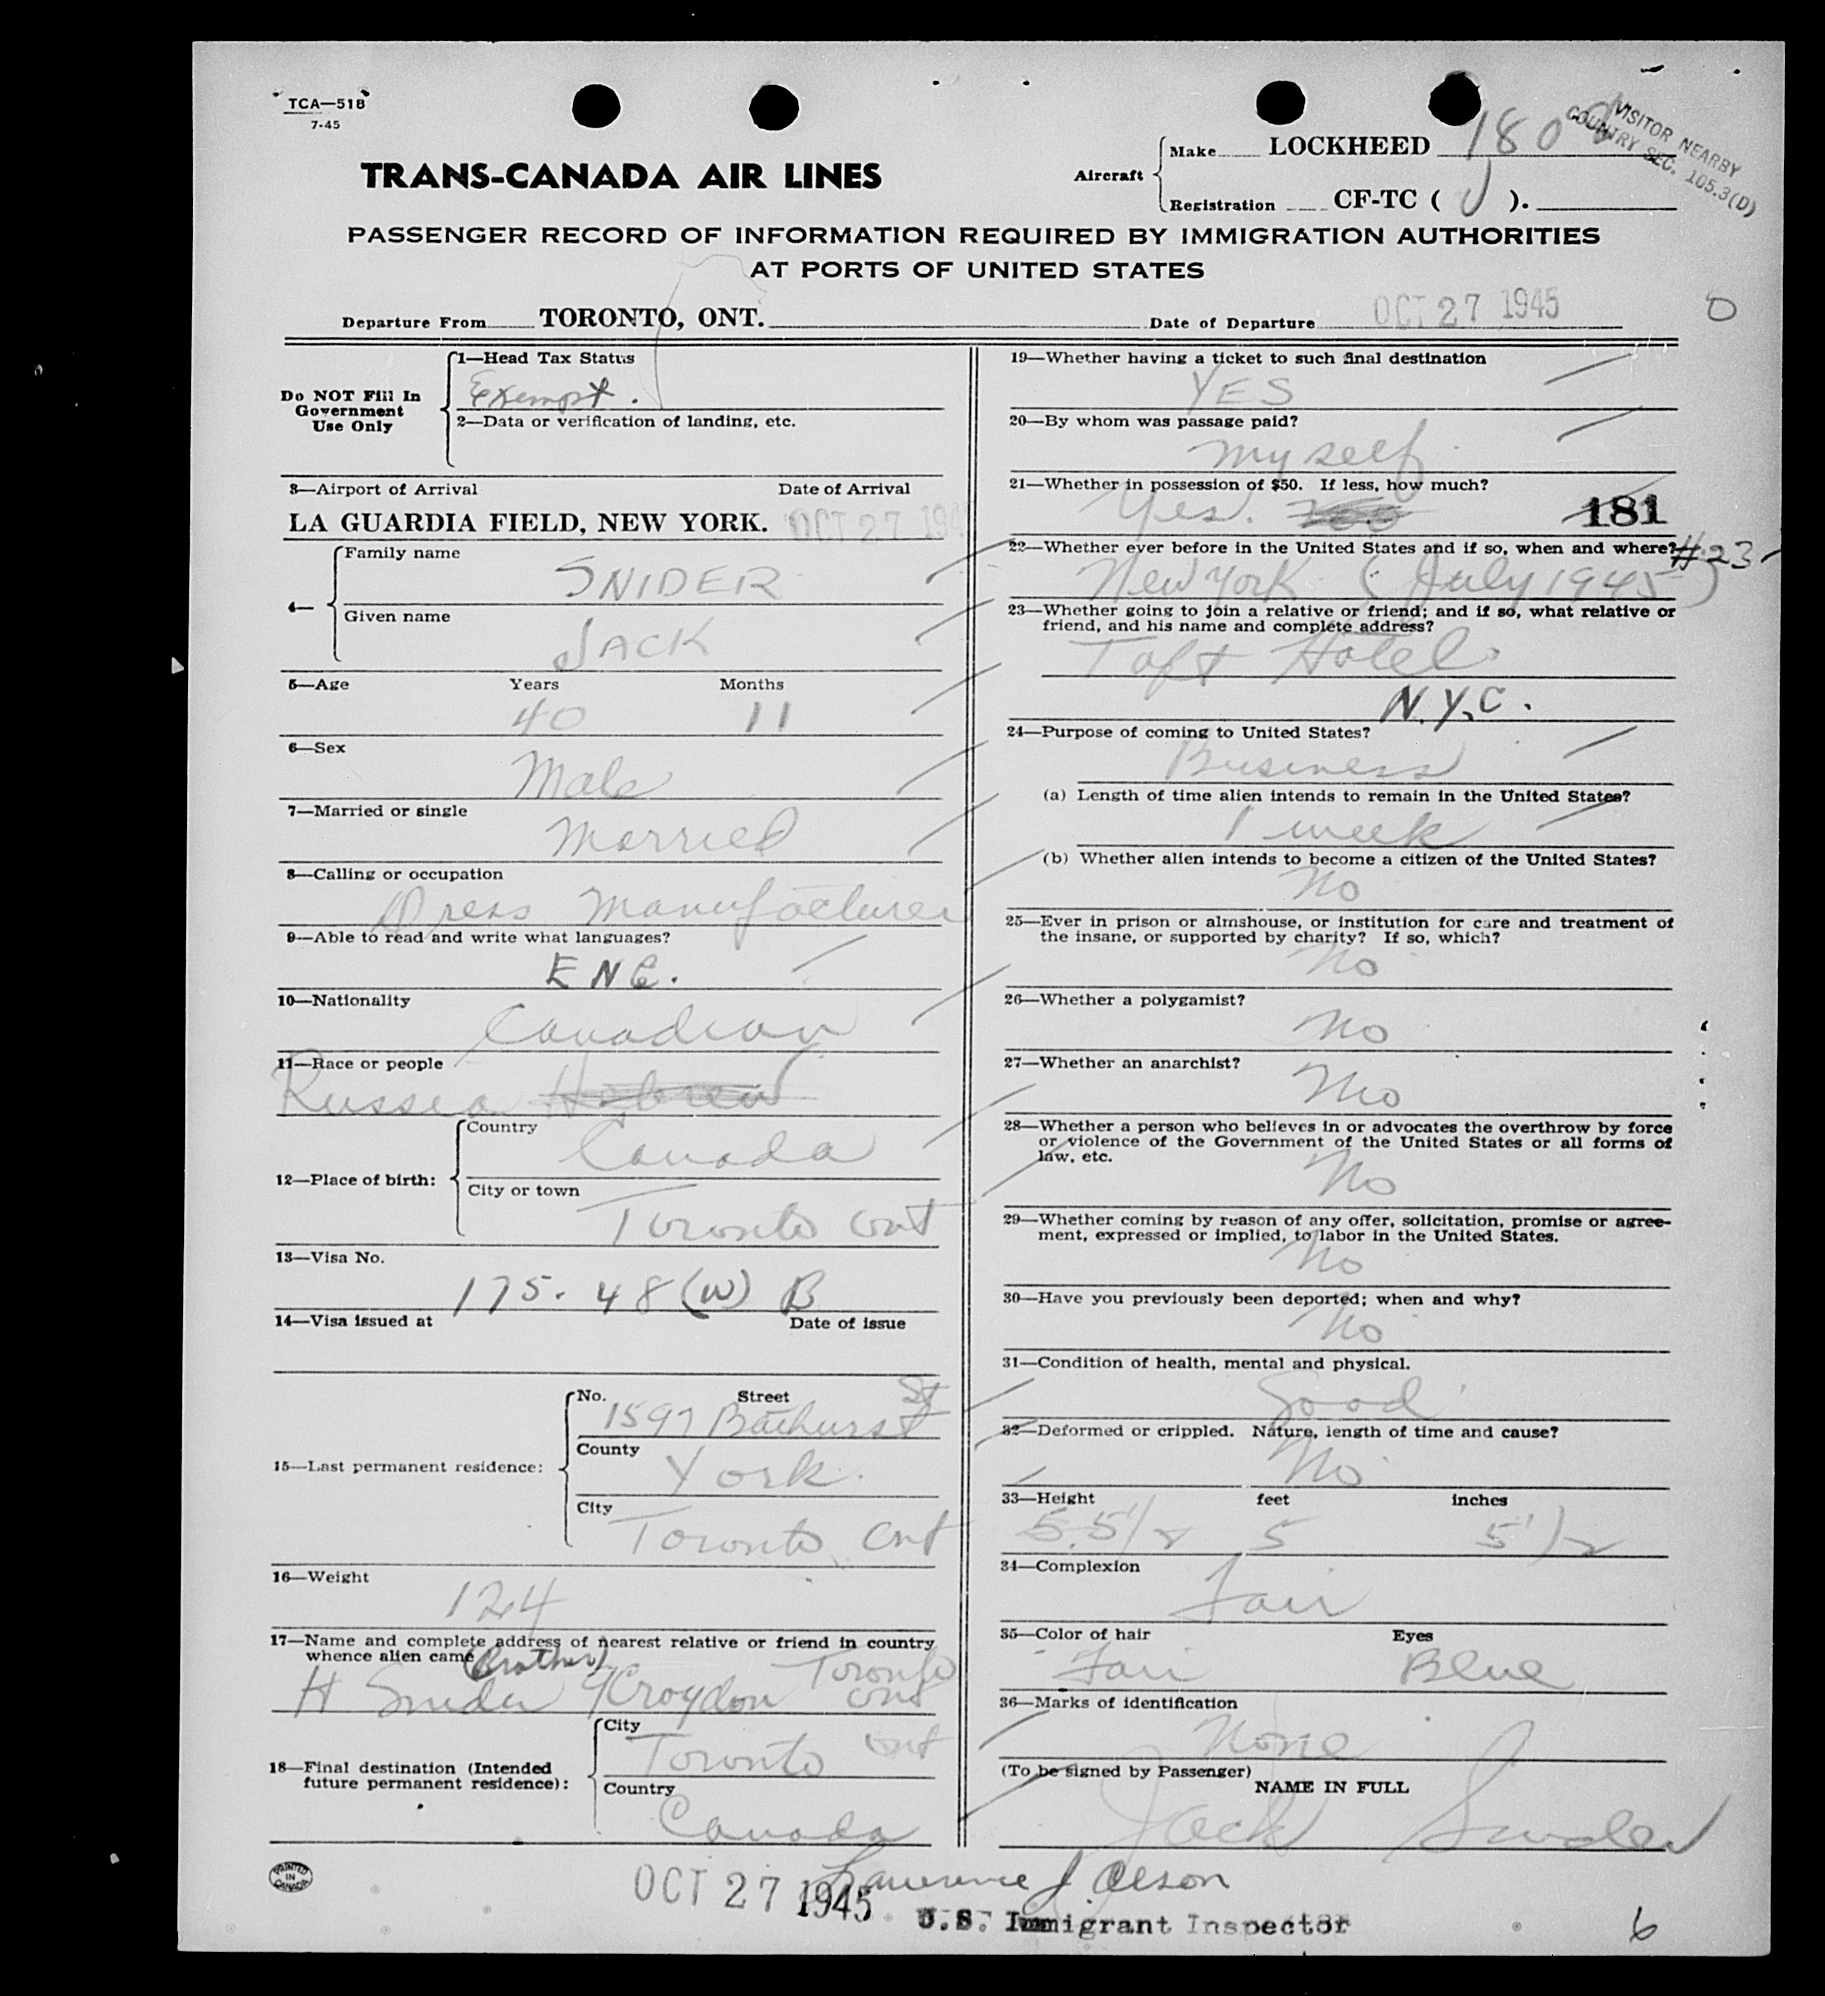 TCA—518
7-45
VISITOR NEARBY
COUNTRY SEC. 105.3(D)
TRANS-CANADA AIR LINES
Aircraft
Make LOCKHEED 180
Registration CF-TC ( J ).
PASSENGER RECORD OF INFORMATION REQUIRED BY IMMIGRATION AUTHORITIES
AT PORTS OF UNITED STATES
Departure From TORONTO, ONT.
Date of Departure OCT 27 1945
0
Do NOT Fill In
Government
Use Only
1—Head Tax Status
Exempt.
2—Data or verification of landing, etc.
3—Airport of Arrival Date of Arrival
LA GUARDIA FIELD, NEW YORK. OCT 27 194
4—
Family name
SNIDER
Given name
JACK
5—Age Years Months
40 11
6—Sex
Male
7—Married or single
Married
8—Calling or occupation
Dress Manufacturer
9—Able to read and write what languages?
ENG.
10—Nationality
Canadian
11—Race or people
Russian Hebrew
12—Place of birth:
Country
Canada
City or town
Toronto Ont
13—Visa No.
175. 48 (W) B
14—Visa issued at Date of issue
15—Last permanent residence:
No. Street St
1597 Bathurst
County
York.
City
Toronto, Ont
16—Weight
124
17—Name and complete address of nearest relative or friend in country
whence alien came (Brother) Toronto
H Snider Croydon Ont
18—Final destination (Intended
future permanent residence):
City
Toronto Ont
Country
Canada
19—Whether having a ticket to such final destination
YES
20—By whom was passage paid?
myself
21—Whether in possession of $50. If less, how much?
Yes. 181
22—Whether ever before in the United States and if so, when and where? #23
New York (July 1945)
23—Whether going to join a relative or friend; and if so, what relative or
friend, and his name and complete address?
Taft Hotel
N.Y.C.
24—Purpose of coming to United States?
Business
(a) Length of time alien intends to remain in the United States?
1 week
(b) Whether alien intends to become a citizen of the United States?
No
25—Ever in prison or almshouse, or institution for care and treatment of
the insane, or supported by charity? If so, which?
No
26—Whether a polygamist?
No
27—Whether an anarchist?
No
28—Whether a person who believes in or advocates the overthrow by force
or violence of the Government of the United States or all forms of
law, etc.
No
29—Whether coming by reason of any offer, solicitation, promise or agree-
ment, expressed or implied, to labor in the United States.
No
30—Have you previously been deported; when and why?
No
31—Condition of health, mental and physical.
Good
32—Deformed or crippled. Nature, length of time and cause?
No
33—Height feet inches
5.5 1/2 5 5 1/2
34—Complexion
Fair
35—Color of hair Eyes
Fair Blue
36—Marks of identification
None
(To be signed by Passenger)
NAME IN FULL
Jack Snider
PRINTED
IN
CANADA
OCT 27 1945
Lawrence J. Olson
U.S. Immigrant Inspector
6